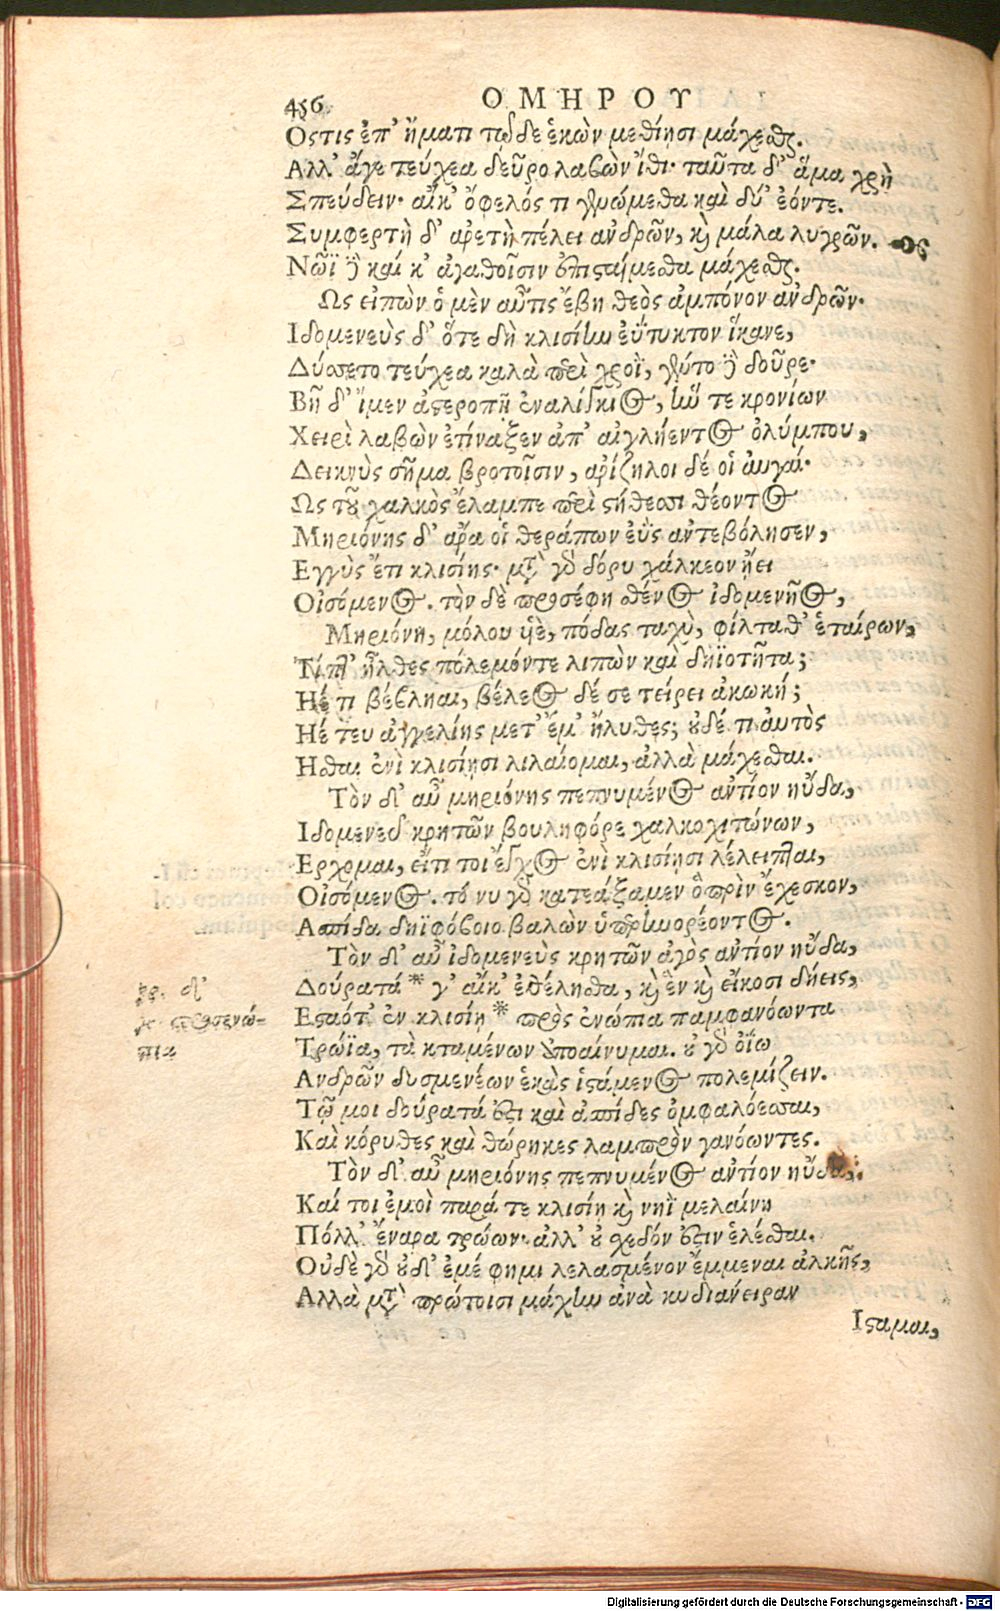 456 ΟΜΗΡΟΥ
Οςτις ἐπ' ἤματι τῷδε ἑκὼν μεθίησι μάχεσθαι.
Αλλ' ἄγε τεύχεα δεῦρο λαβὼν ἴθι· ταῦτα δ' ἅμα χρὴ
Σπεύδειν· αἴκ' ὄφελός τι γενώμεθα καὶ δύ' ἐόντε.
Συμφερτὴ δ' ἀρετὴ πέλει ἀνδρῶν, καὶ μάλα λυγρῶν.
Νῶϊ δὲ καί κ' ἀγαθοῖσιν ἐπισταίμεσθα μάχεσθαι.
Ως εἰπὼν ὁ μὲν αὖτις ἔβη θεὸς ἀμπόνον ἀνδρῶν·
Ιδομενεὺς δ' ὅτε δὴ κλισίην ἐΰτυκτον ἵκανε,
Δύσετο τεύχεα καλὰ περὶ χροῒ, γέντο δὲ δοῦρε·
Βῆ δ' ἴμεν ἀστεροπῇ ἐναλίγκιος, ἥν τε κρονίων
Χειρὶ λαβὼν ἐτίναξεν ἀπ' αἰγλήεντος ὀλύμπου,
Δεικνὺς σῆμα βροτοῖσιν, ἀρίζηλοι δέ οἱ αὐγαί·
Ως τοῦ χαλκὸς ἔλαμπε περὶ στήθεσσι θέοντος
Μηριόνης δ' ἄρα οἱ θεράπων ἐῢς ἀντεβόλησεν,
Εγγὺς ἔτι κλισίης· μετὰ γὰρ δόρυ χάλκεον ᾔει
Οἰσόμενος. τὸν δὲ προσέφη σθένος ἰδομενῆος,
Μηριόνη, μόλου υἱὲ, πόδας ταχὺ, φίλταθ' ἑταίρων,
Τίπτ' ἦλθες πόλεμόντε λιπὼν καὶ δηϊοτῆτα;
Ηέ τι βέβληαι, βέλεος δέ σε τείρει ἀκωκή;
Ηέ τευ ἀγγελίης μετ' ἔμ' ἤλυθες; οὐδέ τι αὐτὸς
Ησθαι ἐνὶ κλισίῃσι λιλαίομαι, ἀλλὰ μάχεσθαι.
Τὸν δ' αὖ μηριόνης πεπνυμένος ἀντίον ηὔδα,
Ιδομενεῦ κρητῶν βουληφόρε χαλκοχιτώνων,
Ερχομαι, εἴτι τοι ἔγχος ἐνὶ κλισίῃσι λέλειπται,
Οἰσόμενος. τό νυ γὰρ κατεάξαμεν ὃ πρὶν ἔχεσκον,
Ασπίδα δηϊφόβοιο βαλὼν ὑπερηνορέοντος.
Τὸν δ' αὖ ἰδομενεὺς κρητῶν ἀγὸς ἀντίον ηὔδα,
Δούρατά * γ' αἴκ' ἐθέλησθα, καὶ ἓν καὶ εἴκοσι δήεις,
Εσταότ' ἐν κλισίῃ * πρὸς ἐνώπια παμφανόωντα
Τρώϊα, τὰ κταμένων ἀποαίνυμαι. οὐ γὰρ ὀΐω
Ανδρῶν δυσμενέων ἑκὰς ἱστάμενος πολεμίζειν.
Τῷ μοι δούρατά ἐστι καὶ ἀσπίδες ὀμφαλόεσσαι,
Καὶ κόρυθες καὶ θώρηκες λαμπρὸν γανόωντες.
Τὸν δ' αὖ μηριόνης πεπνυμένος ἀντίον ηὔδα,
Καί τοι ἐμοὶ παρά τε κλισίῃ καὶ νηῒ μελαίνῃ
Πόλλ' ἔναρα τρώων· ἀλλ' οὐ σχεδόν ἐστιν ἑλέσθαι.
Οὐδὲ γὰρ οὐδ' ἐμέ φημι λελασμένον ἔμμεναι ἀλκῆς,
Αλλὰ μετὰ πρώτοισι μάχην ἀνὰ κυδιάνειραν
Ιςαμαι,
γρ. δ'
γρ. προσενώ-
πια
Digitalisierung gefördert durch die Deutsche Forschungsgemeinschaft - DFG